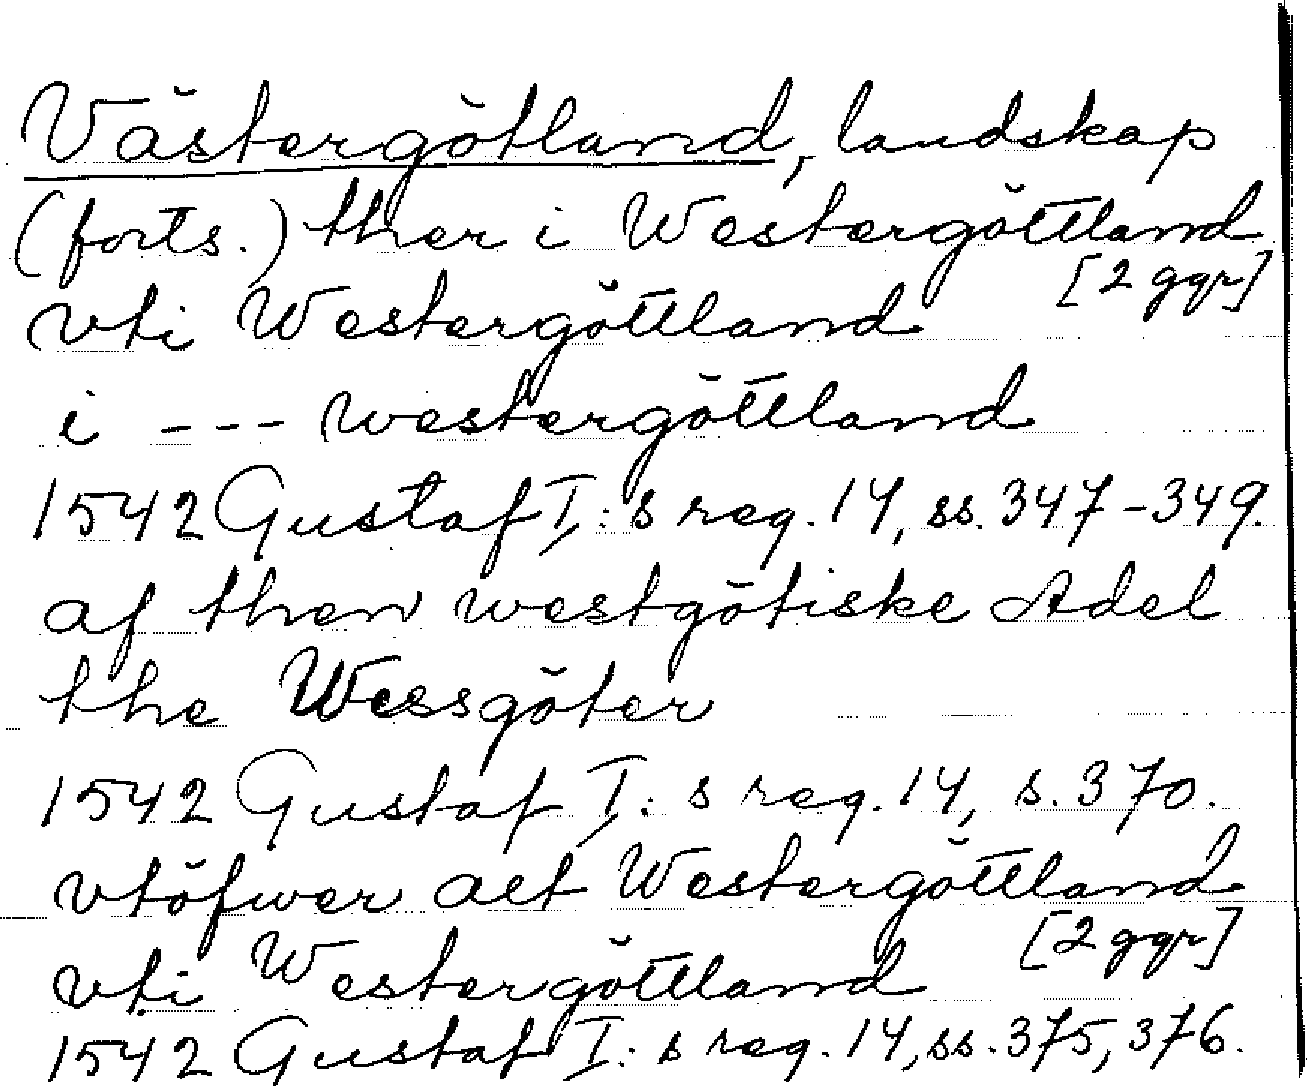 Västergötland, landskap
(forts.) ther i Westergöttland
[2 ggr]
vti Westergöttland
i --- westergöttland
1542 Gustaf I:s reg. 14, ss. 347-349.
af then westgötiske Adel
the Wessgöter
1542 Gustaf I:s reg. 14, s. 370.
vtöfwer alt Westergöttland
[2 ggr]
vti Westergöttland
1542 Gustaf I:s reg. 14, ss. 375, 376.